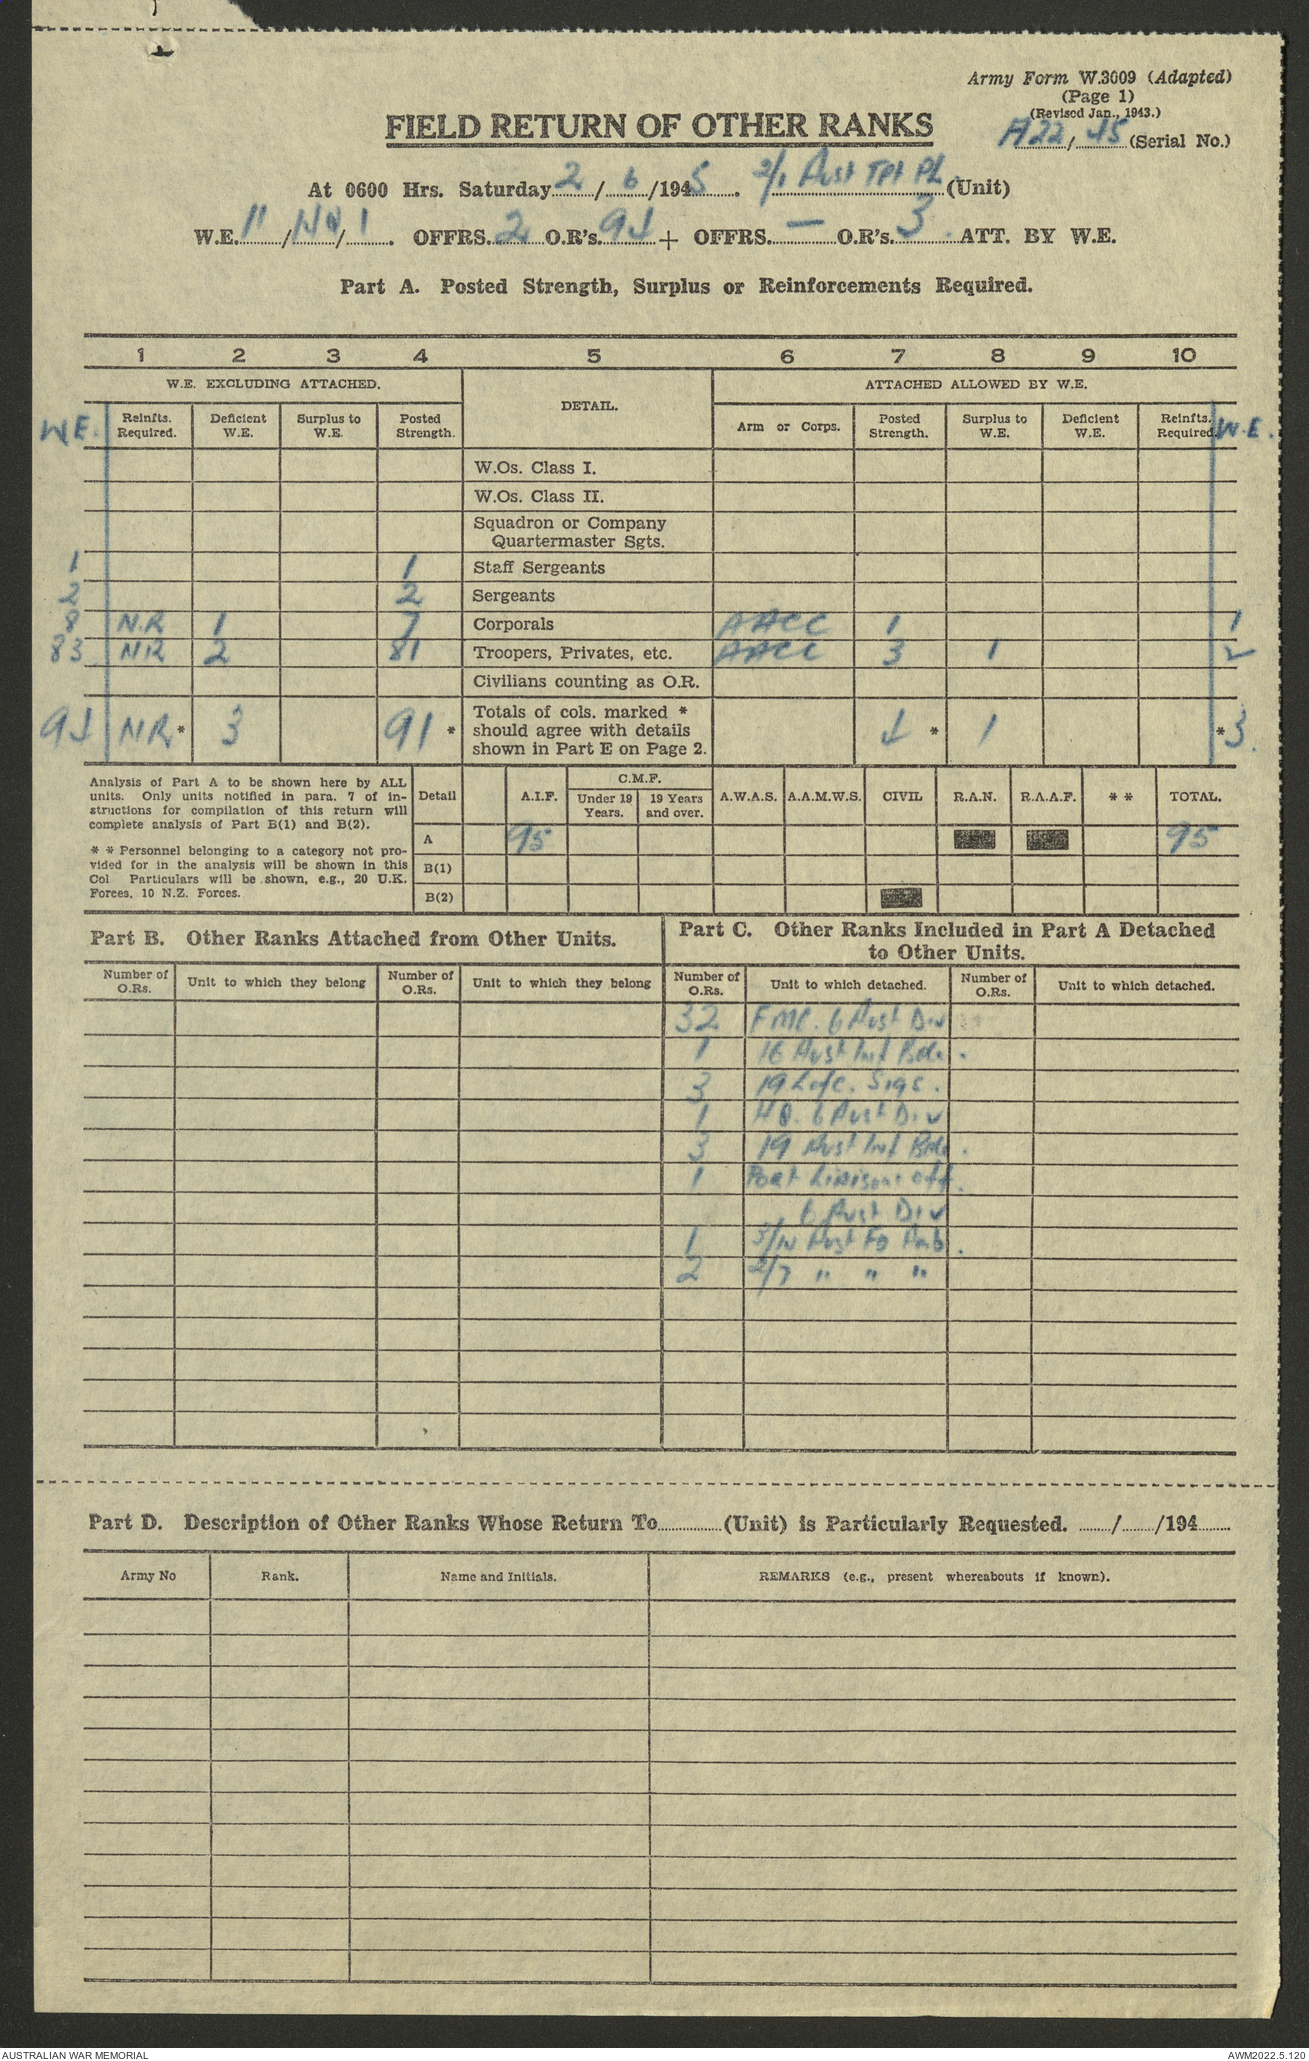 Army Form W.3009 (Adapted)
(Page 1)
(Revised Jan., 1943.)
FIELD RETURN OF OTHER RANKS
A22/45 (Serial No.)
At 0600 Hrs. Saturday 2/6/1945. 2/1 Aust Tpt Pl (Unit)
W.E. 11/ /1. OFFRS. 2 O.R's. 94 + OFFRS. — O.R's. 3. ATT. BY W.E.
Part A. Posted Strength, Surplus or Reinforcements Required.
1 2 3 4 5 6 7 8 9 10
W.E. EXCLUDING ATTACHED. DETAIL. ATTACHED ALLOWED BY W.E.
W.E. Reinfts. Required. Deficient W.E. Surplus to W.E. Posted Strength. Arm or Corps. Posted Strength. Surplus to W.E. Deficient W.E. Reinfts. Required. W.E.
W.Os. Class I.
W.Os. Class II.
Squadron or Company
Quartermaster Sgts.
1 1 Staff Sergeants
2 2 Sergeants
8 N.R 1 7 Corporals AACC 1 1
83 NR 2 81 Troopers, Privates, etc. AACC 3 1 2
Civilians counting as O.R.
94 NR * 3 91 * Totals of cols. marked * should agree with details shown in Part E on Page 2. 4 * 1 * 3.
Analysis of Part A to be shown here by ALL
units. Only units notified in para. 7 of in-
structions for compilation of this return will
complete analysis of Part B(1) and B(2).
* * Personnel belonging to a category not pro-
vided for in the analysis will be shown in this
Col Particulars will be shown, e.g., 20 U.K.
Forces, 10 N.Z. Forces.
Detail A.I.F. C.M.F. Under 19 Years. 19 Years and over. A.W.A.S. A.A.M.W.S. CIVIL R.A.N. R.A.A.F. * * TOTAL.
A 95 95
B(1)
B(2)
Part B. Other Ranks Attached from Other Units.
Part C. Other Ranks Included in Part A Detached
to Other Units.
Number of O.Rs. Unit to which they belong Number of O.Rs. Unit to which they belong Number of O.Rs. Unit to which detached. Number of O.Rs. Unit to which detached.
32 FMC. 6 Aust Div
1 16 Aust Inf Bde.
3 19 Sigs.
1 HQ. 6 Aust Div
3 19 Aust Inf Bde.
1 Port Liaison off.
6 Aust Div
1 Aust Fd Amb.
2 2/7 " " "
Part D. Description of Other Ranks Whose Return To (Unit) is Particularly Requested. / /194
Army No Rank. Name and Initials. REMARKS (e.g., present whereabouts if known).
AUSTRALIAN WAR MEMORIAL AWM2022.5.120